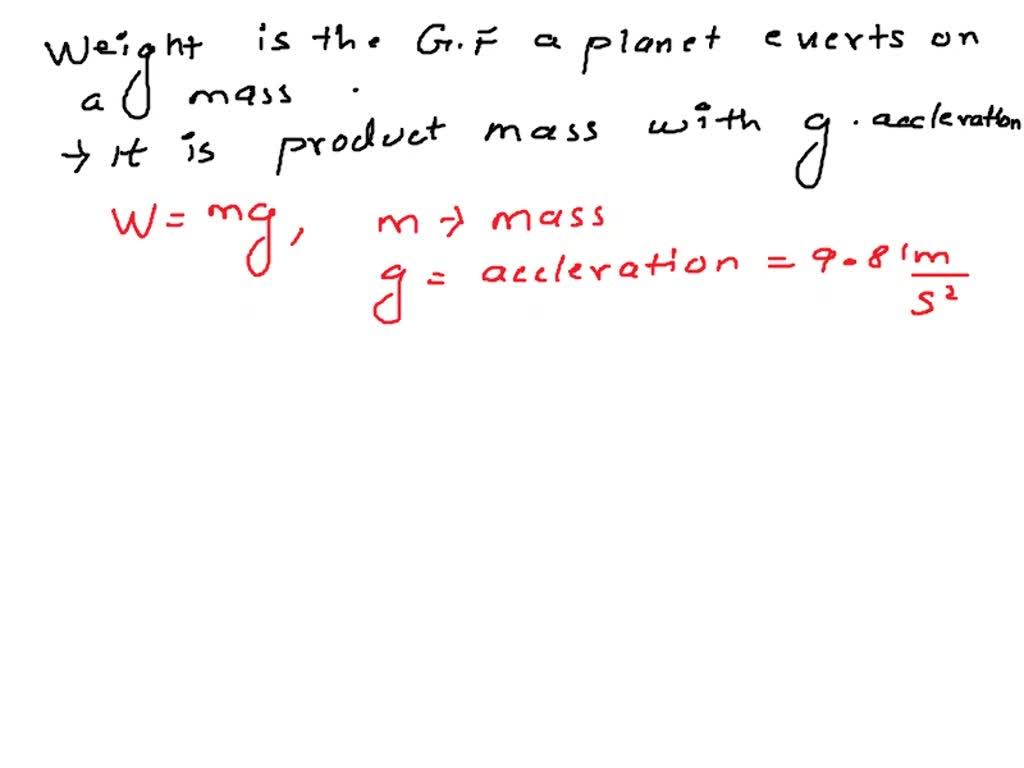 Weight is the G.F a planet exerts on
a mass.
→ It is product mass with g. accleration
W = mg, m → mass
g = accleration = 9.81 m/s²